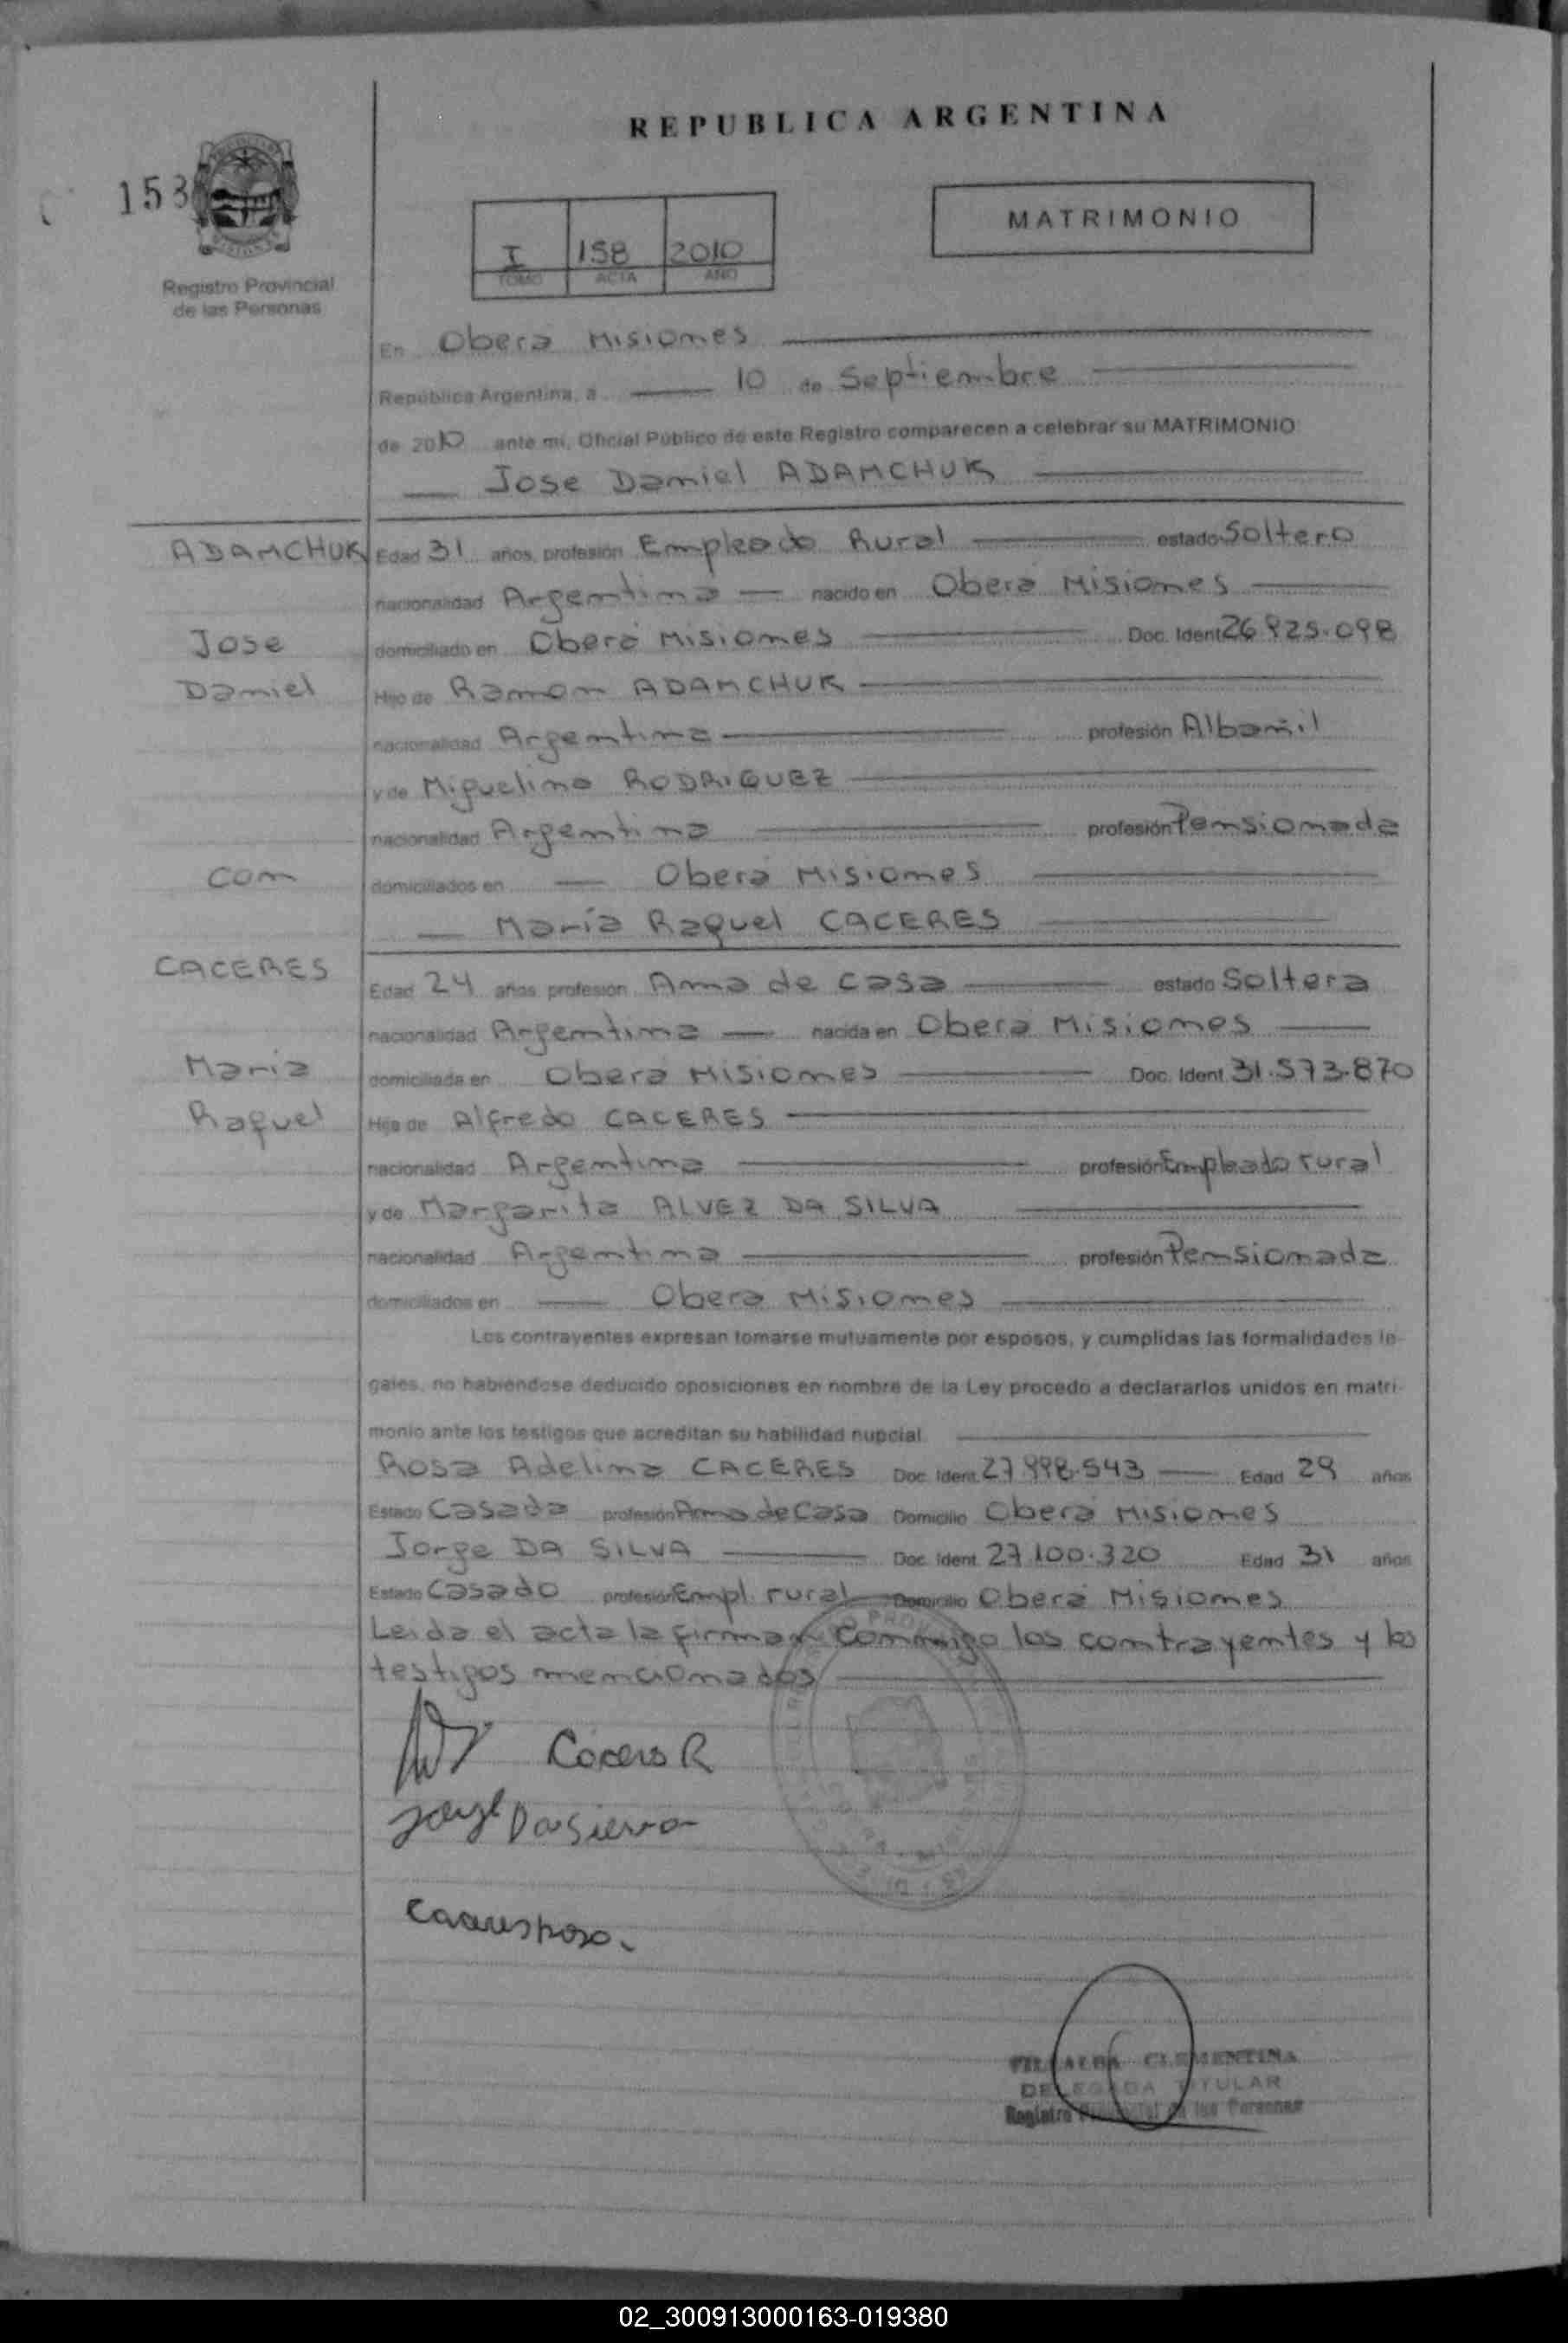 REPUBLICA ARGENTINA
158
MATRIMONIO
I 158 2010
TOMO ACTA AÑO
Registro Provincial
de las Personas
En Obera Misiones
República Argentina, a 10 de Septiembre
de 2010 ante mi, Oficial Público de este Registro comparecen a celebrar su MATRIMONIO:
Jose Daniel ADAMCHUK
ADAMCHUK Edad 31 años, profesión Empleado Rural estado Soltero
nacionalidad Argentina nacido en Oberá Misiones
Jose domiciliado en Oberá Misiones Doc. Ident. 26.925.098
Daniel Hijo de Ramon ADAMCHUK
nacionalidad Argentina profesión Albañil
y de Miguelina RODRIGUEZ
nacionalidad Argentina profesión Pensionada
con domiciliados en Oberá Misiones
María Raquel CACERES
CACERES Edad 24 años profesión Ama de casa estado Soltera
nacionalidad Argentina nacida en Oberá Misiones
Maria domiciliada en Oberá Misiones Doc. Ident. 31.573.870
Raquel Hija de Alfredo CACERES
nacionalidad Argentina profesión Empleado rural
y de Margarita ALVEZ DA SILVA
nacionalidad Argentina profesión Pensionada
domiciliados en Obera Misiones
Los contrayentes expresan tomarse mutuamente por esposos, y cumplidas las formalidades le-
gales, no habiéndose deducido oposiciones en nombre de la Ley procedo a declararlos unidos en matri-
monio ante los testigos que acreditan su habilidad nupcial.
Rosa Adelina CACERES Doc. Ident. 27.998.543 Edad 29 años
Estado Casada profesión Ama de Casa Domicilio Oberá Misiones
Jorge DA SILVA Doc. Ident. 27.100.320 Edad 31 años
Estado Casado profesión Empl. rural Domicilio Oberá Misiones
Leida el acta la firman conmigo los contrayentes y los
testigos mencionados
Caceres R
Jorge Da Silva
Caceres Rosa.
CLEMENTINA
DELEGADA TITULAR
Registro Provincial de las Personas
02_300913000163-019380